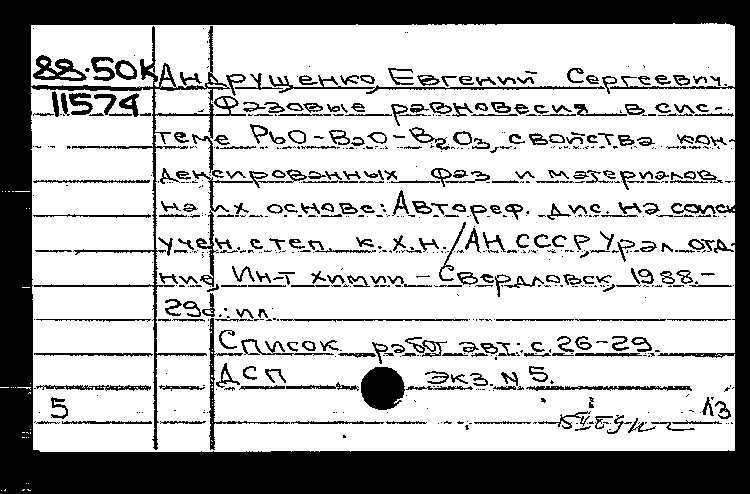 88-50к Андрущенко, Евгений Сергеевич.
11574 Фазовые равновесия в сис-
теме PbO-BaO-B2O3, свойства кон-
денсированных фаз и материалов
на их основе: Автореф. дис. на соиск
учен. степ. к.х.н. / АН СССР, Урал отд-
ние, Ин-т химии - Свердловск, 1988.-
29с.: ил.
Список работ авт.: с. 26-29.
ДСП экз. N 5.
5 ЛЗ